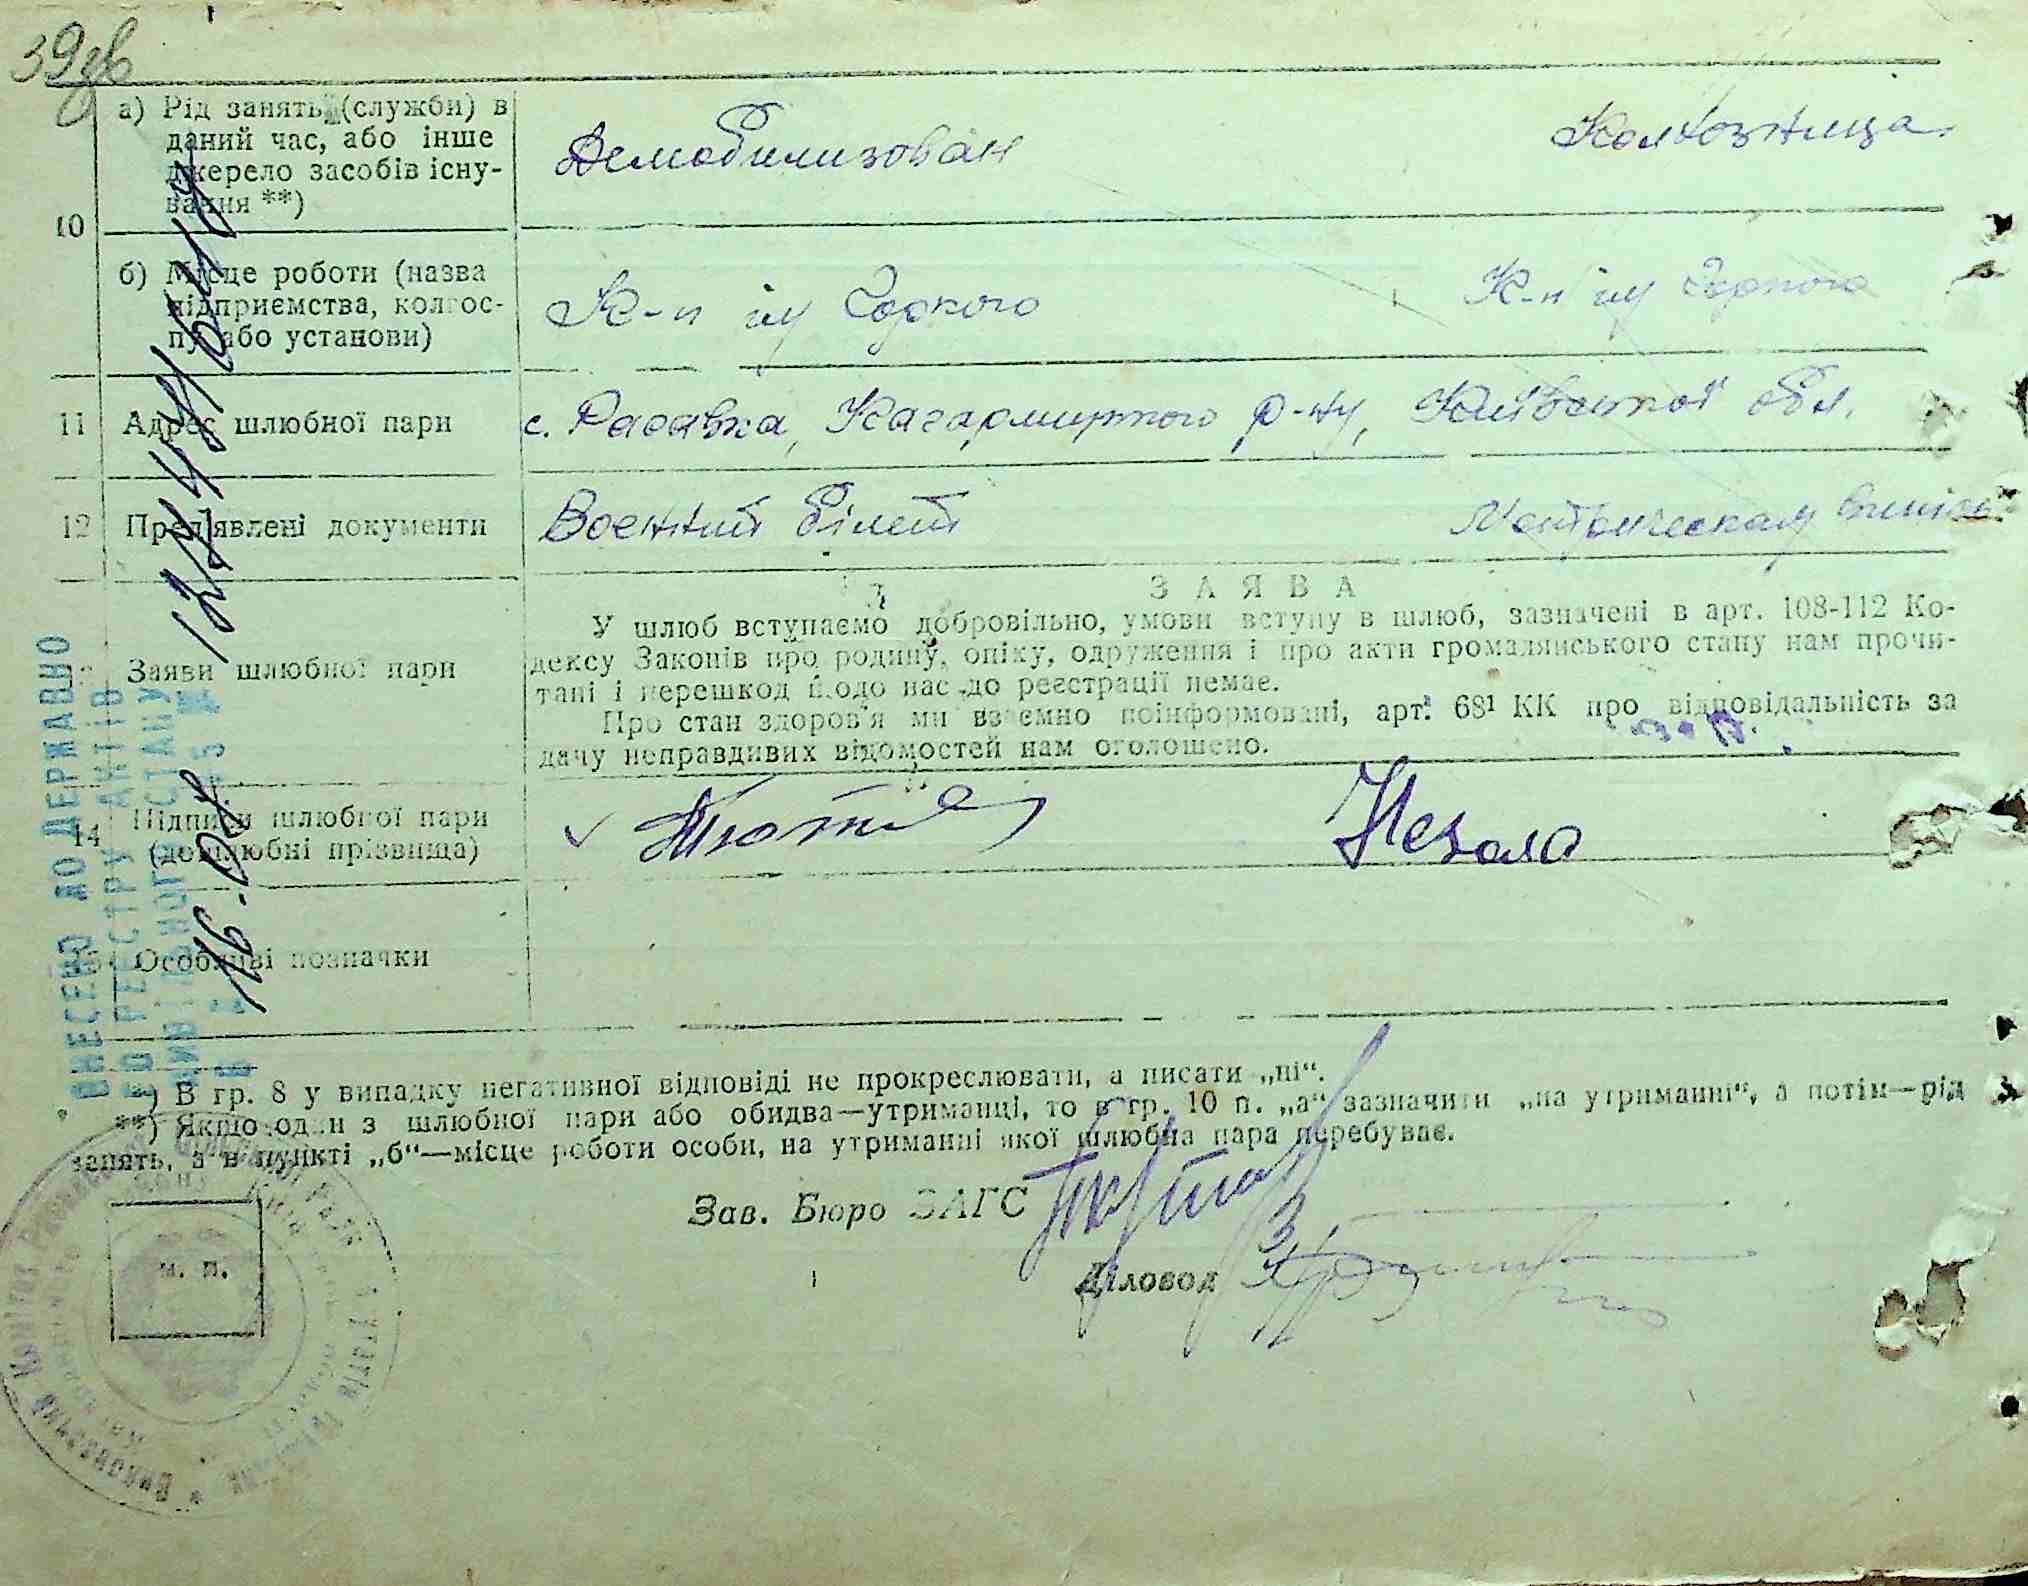 39зв
а) Рід занять (служби) в
даний час, або інше
джерело засобів існу-
вання **)
Демобилизован
Колхозница.
10
б) Місце роботи (назва
підприємства, колгос-
пу або установи)
К-п ім Горкого
К-п ім Горкого
11 Адрес шлюбної пари
с. Расавка, Кагарлицкого р-ну, Київської обл.
12 Пред'явлені документи
Воєнний білет
З А Я В А
Заяви шлюбної пари
У шлюб вступаємо добровільно, умови вступу в шлюб, зазначені в арт. 108-112 Ко-
дексу Законів про родину, опіку, одруження і про акти громадянського стану нам прочи-
тані і перешкод щодо нас до реєстрації немає.
Про стан здоров'я ми взаємно поінформовані, арт. 68¹ КК про відповідальність за
дачу неправдивих відомостей нам оголошено.
14 Підписи шлюбної пари
(дошлюбні прізвища)
Особливі позначки
*) В гр. 8 у випадку негативної відповіді не прокреслювати, а писати „ні“.
**) Якщо один з шлюбної пари або обидва—утриманці, то в гр. 10 п. „а“ зазначити „на утриманні“, а потім—рід
занять, а в пункті „б“—місце роботи особи, на утриманні якої шлюбна пара перебуває.
Зав. Бюро ЗАГС
Діловод
м. п.
ВНЕСЕНО ДО ДЕРЖАВНО
ГО РЕЄСТРУ АКТІВ
ЦИВІЛЬНОГО СТАНУ